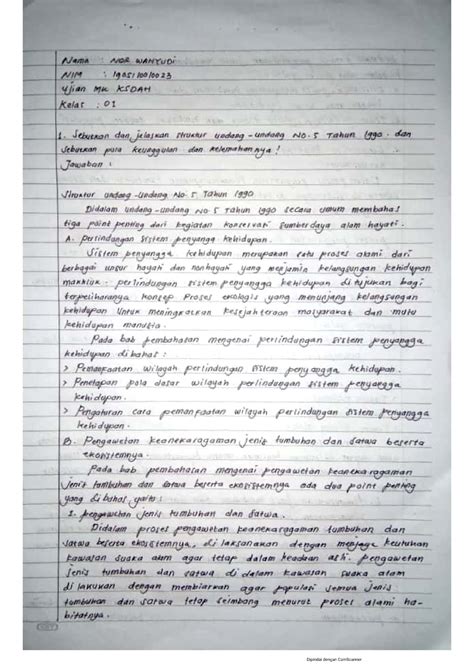 Nama : NOR WAHYUDI
NIM : 1905110010023
Ujian MK KSDAH
Kelas : 01
1. Sebutkan dan jelaskan struktur undang-undang NO. 5 Tahun 1990. dan
sebutkan pula keunggulan dan kelemahannya!
Jawaban :
Struktur undang-undang NO. 5 Tahun 1990
Didalam undang-undang NO 5 Tahun 1990 secara umum membahas
tiga point penting dari kegiatan konservasi sumberdaya alam hayati.
A. Perlindungan sistem penyangga kehidupan.
Sistem penyangga kehidupan merupakan proses alami dari
berbagai unsur hayati dan nonhayati yang menjamin kelangsungan kehidupan
makhluk. perlindungan sistem penyangga kehidupan di tujukan bagi
terpeliharanya konsep Proses ekologis yang menunjang kelangsungan
kehidupan untuk meningkatkan kesejahteraan masyarakat dan mutu
kehidupan manusia.
Pada bab pembahasan mengenai perlindungan sistem penyangga
kehidupan dibahas :
> Pemanfaatan wilayah perlindungan sistem penyangga kehidupan.
> Penetapan pola dasar wilayah perlindungan sistem penyangga
kehidupan.
> Pengaturan cara pemanfaatan wilayah perlindungan sistem penyangga
kehidupan.
B. Pengawetan keanekaragaman jenis tumbuhan dan satwa beserta
ekosistemnya.
Pada bab pembahasan mengenai pengawetan keanekaragaman
jenis tumbuhan dan satwa beserta ekosistemnya ada dua point penting
yang di bahas, yaitu :
1. pengawetan jenis tumbuhan dan satwa.
Didalam proses pengawetan keanekaragaman tumbuhan dan
satwa beserta ekosistemnya, di laksanakan dengan menjaga keutuhan
kawasan suaka alam agar tetap dalam keadaan asli. pengawetan
jenis tumbuhan dan satwa di dalam kawasan suaka alam
di lakukan dengan membiarkan agar populasi semua jenis
tumbuhan dan satwa tetap seimbang menurut proses alami ha-
bitatnya.
Dipindai dengan CamScanner